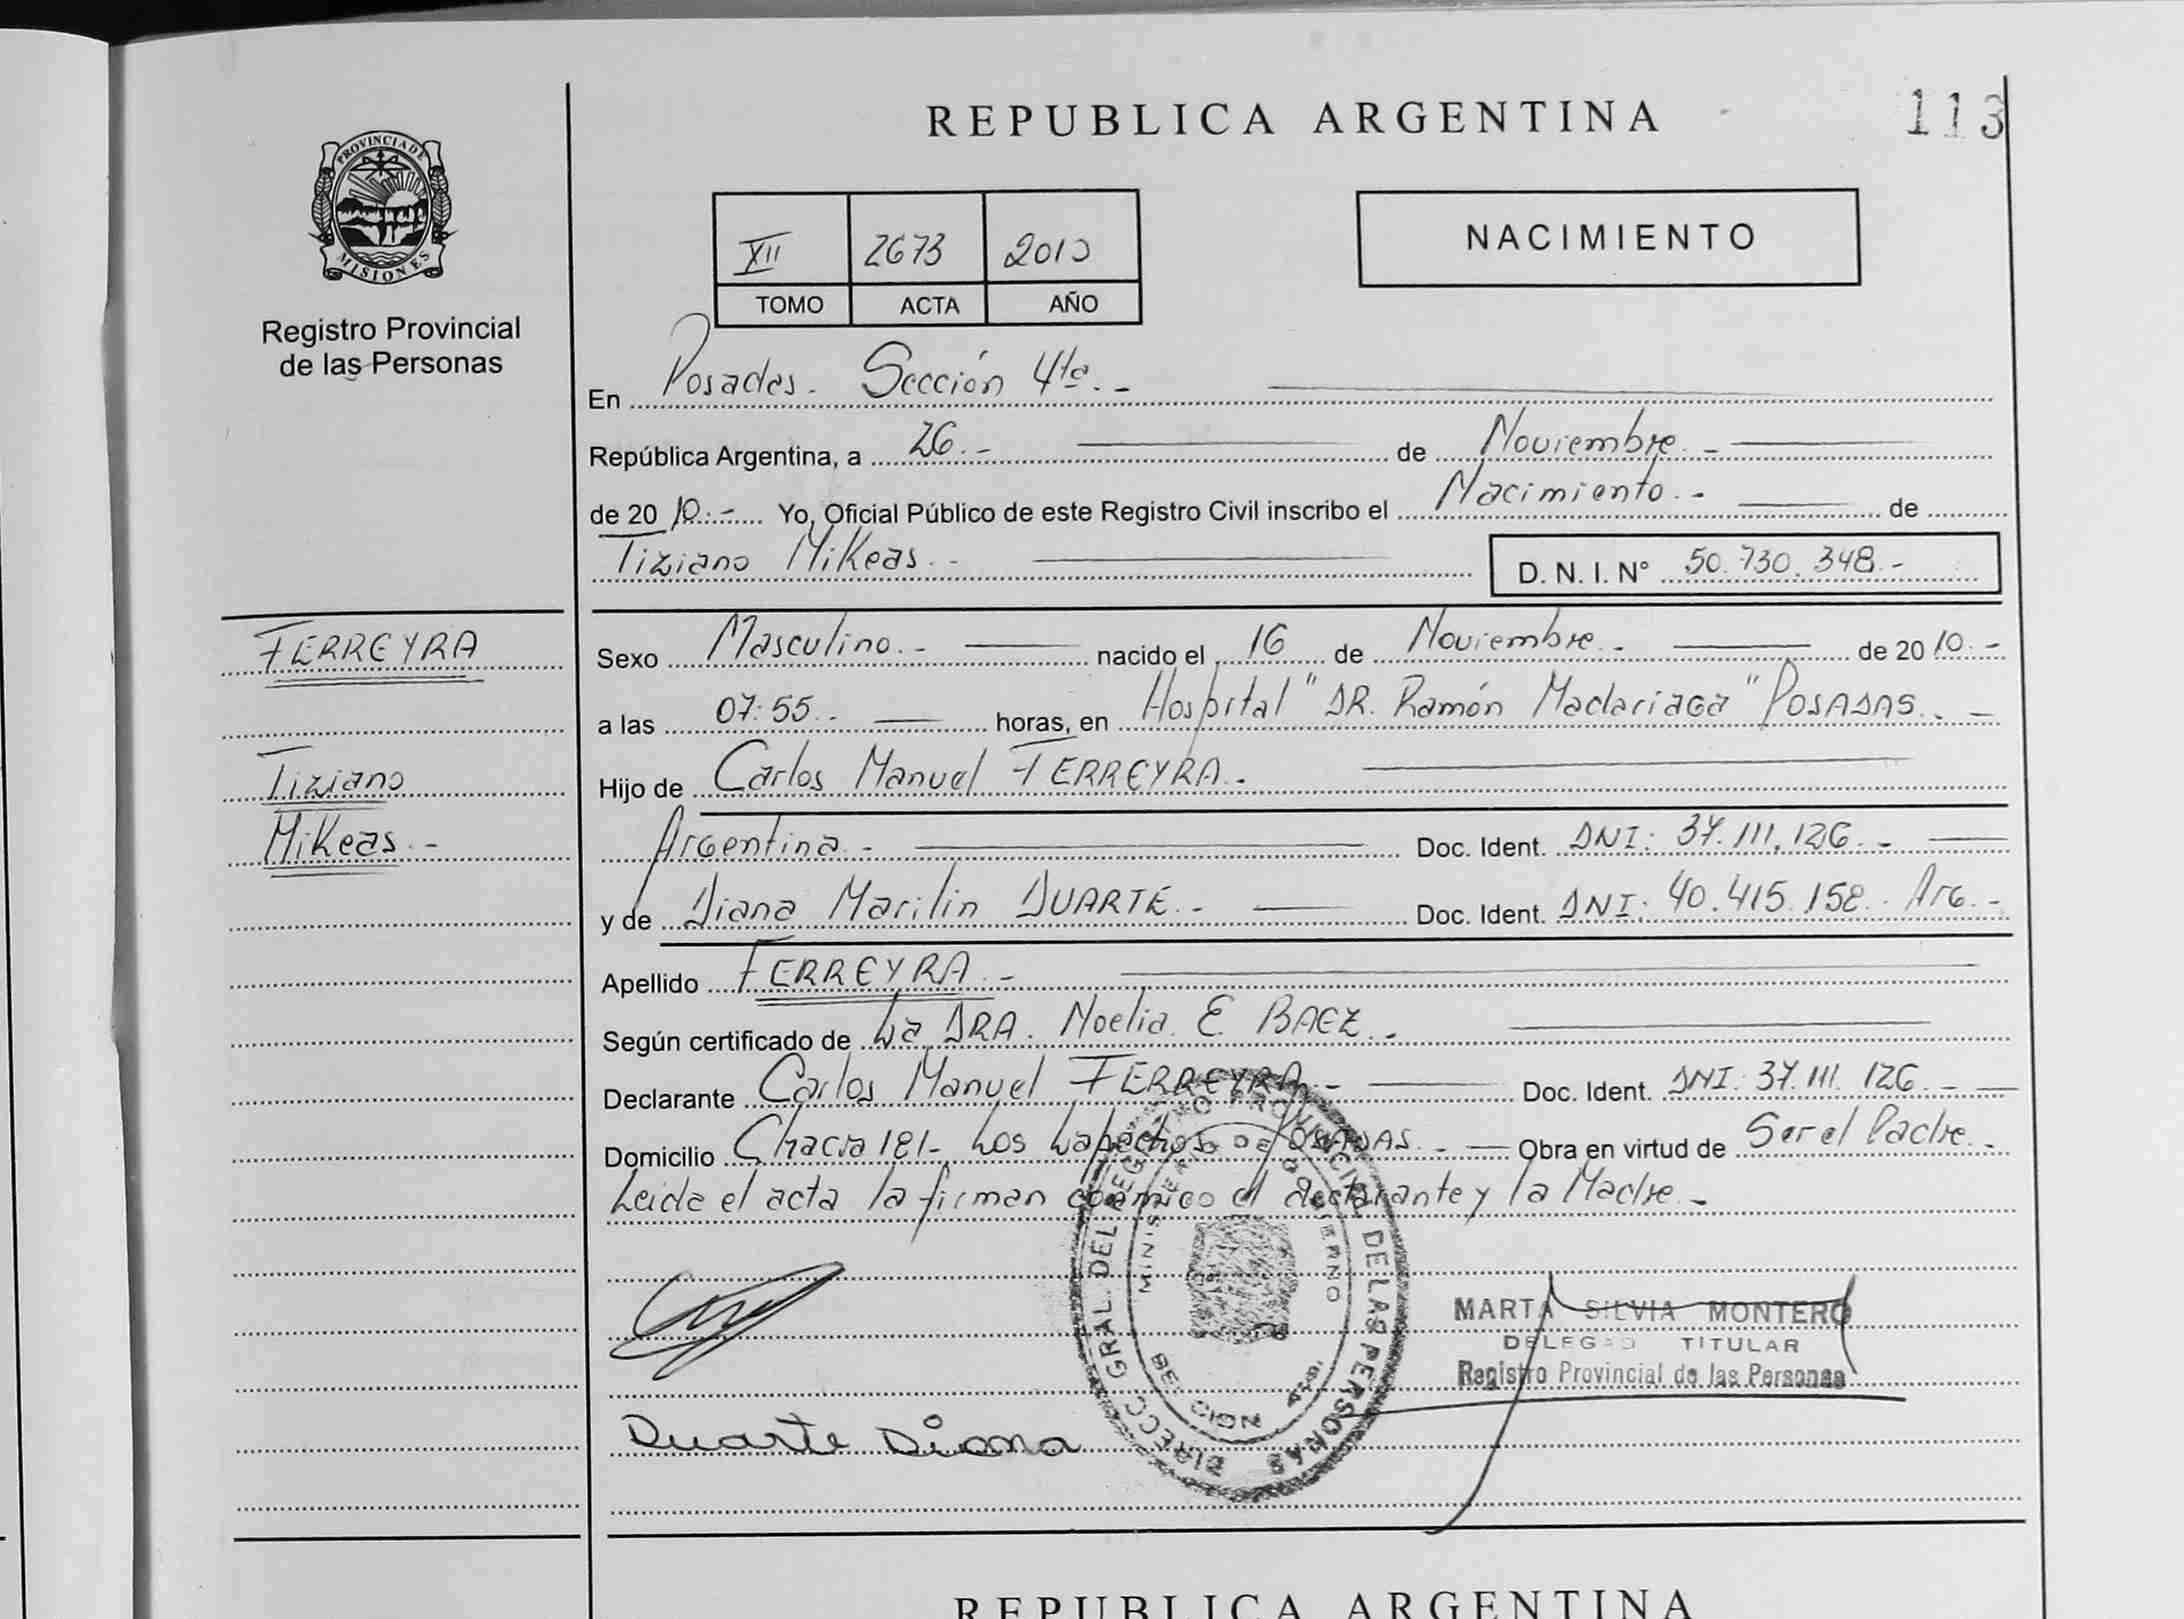 REPUBLICA ARGENTINA
113
PROVINCIA DE
MISIONES
Registro Provincial
de las Personas
XII 2673 2010
TOMO ACTA AÑO
NACIMIENTO
En Posadas. Sección 4ta.-
República Argentina, a 26.- de Noviembre.-
de 20 10.- Yo, Oficial Público de este Registro Civil inscribo el Nacimiento.- de
Tiziano Mikeas.- D. N. I. N° 50.730.348.-
FERREYRA
Tiziano
Mikeas.-
Sexo Masculino.- nacido el 16 de Noviembre.- de 20 10.-
a las 07:55.- horas, en Hospital "DR. Ramón Madariaga" POSADAS.-
Hijo de Carlos Manuel FERREYRA.-
Argentina.- Doc. Ident. DNI: 37.111.126.-
y de Diana Marilin DUARTE.- Doc. Ident. DNI: 40.415.158. Arg.-
Apellido FERREYRA.-
Según certificado de La DRA. Noelia E. BAEZ.-
Declarante Carlos Manuel FERREYRA.- Doc. Ident. DNI: 37.111.126.-
Domicilio Chacra 181- Los Lapachos POSADAS.- Obra en virtud de Ser el Padre.-
Leida el acta la firman conmigo el declarante y la Madre.-
DIRECC. GRAL. DEL REGISTRO PROVINCIAL DE LAS PERSONAS
MINISTERIO DE GOBIERNO
SECCION
MARTA SILVIA MONTERO
DELEGADO TITULAR
Registro Provincial de las Personas
Duarte Diana
REPUBLICA ARGENTINA